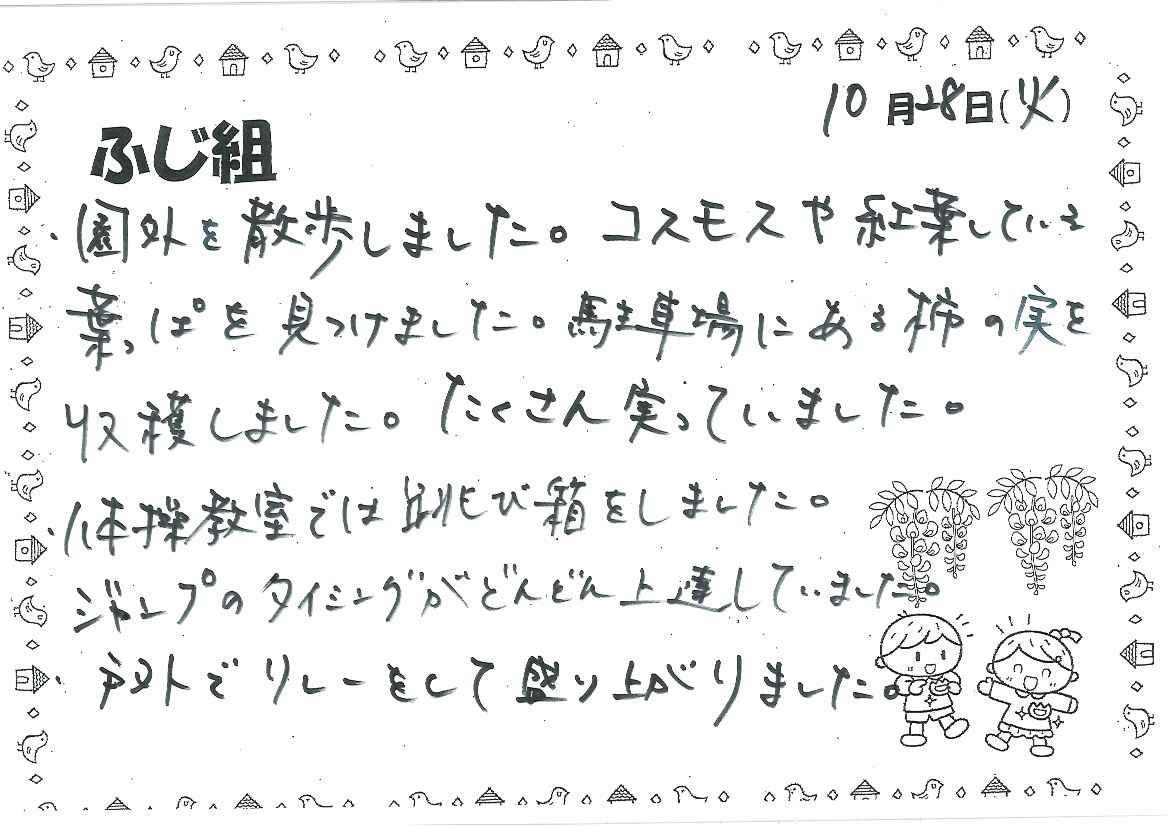 10月28日(火)
ふじ組
・園外を散歩しました。コスモスや紅葉している
葉っぱを見つけました。駐車場にある柿の実を
収穫しました。たくさん実っていました。
・体操教室では跳び箱をしました。
ジャンプのタイミングがどんどん上達していました。
・戸外でリレーをして盛り上がりました。